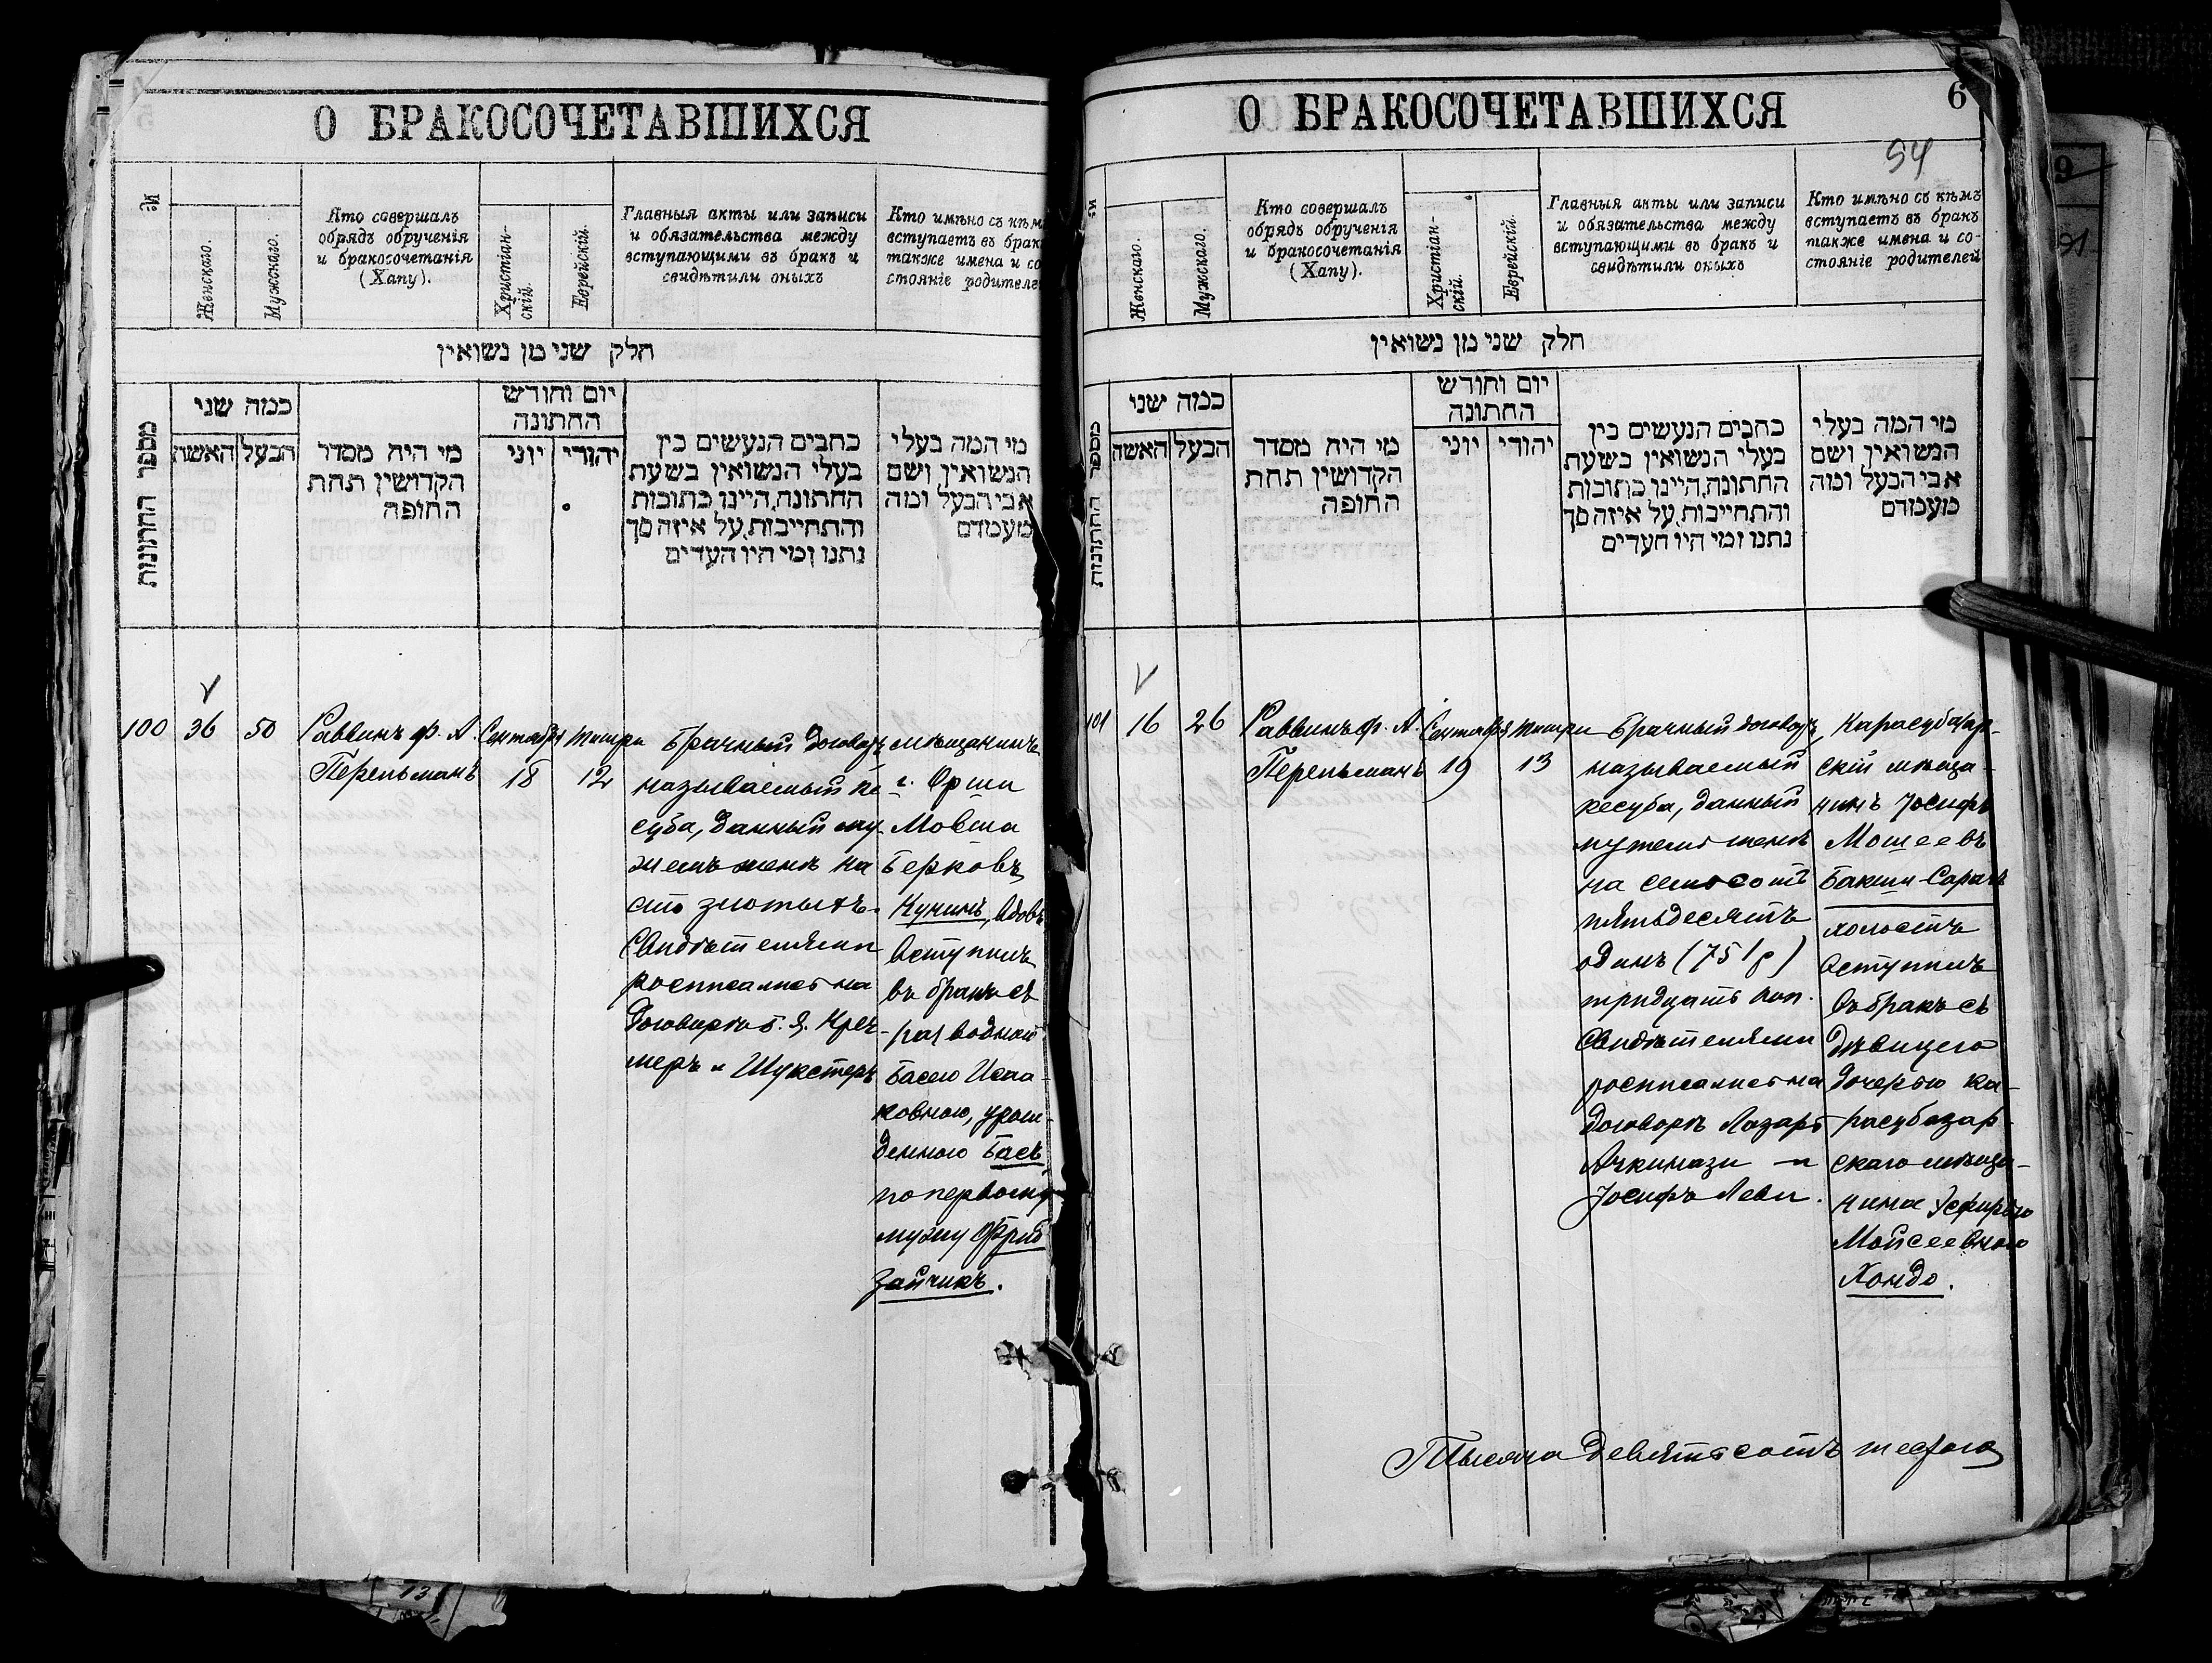 О БРАКОСОЧЕТАВШИХСЯ
№
Женскаго.
Мужскаго.
Кто совершалъ
обрядъ обрученія
и бракосочетанія
(Хапу).
Христіан-
скій.
Еврейскій.
Главныя акты или записи
и обязательства между
вступающими въ бракъ и
свидѣтили оныхъ
Кто имѣно съ кѣм
вступаетъ въ брак
также имена и со
стояніе родителе
חלק שני מן נשואין
מספר החתונות
כמה שני
האשה
הבעל
מי היה מסדר
הקדושין תחת
החופה
יום וחודש
החתונה
יוני
יהודי
כתבים הנעשים בין
בעלי הנשואין בשעת
החתונה, היינו כתובות
והתחייבות, על איזה סך
נתנו ומי היו העדים
מי המה בעלי
הנשואין ושם
אבי הבעל ומה
מעמדם
100
36
50
Раввинъ Ф. А.
Перельманъ
Сентября
18
Тишри
12
Брачный договоръ
называемый ке
суба, данный му
жемъ женѣ на
сто злотыхъ.
Свидѣтелями
росписались на
договорѣ Б. Я. Кре
меръ и Шукстеръ
мѣщанинъ
г. Орши
Мовша
Берковъ
Кунинъ, вдовъ
вступилъ
въ бракъ съ
разводной
Басею Исаа-
ковною, урож-
денною Басъ
по первому
мужу Фрид
Зайчикъ.
О БРАКОСОЧЕТАВШИХСЯ
6
94
№
Женскаго.
Мужскаго.
Кто совершалъ
обрядъ обрученія
и бракосочетанія
(Хапу).
Христіан-
скій.
Еврейскій.
Главныя акты или записи
и обязательства между
вступающими въ бракъ и
свидѣтили оныхъ
Кто имѣно съ кѣмъ
вступаетъ въ бракъ
также имена и со-
стояніе родителей
חלק שני מן נשואין
מספר החתונות
כמה שני
האשה
הבעל
מי היה מסדר
הקדושין תחת
החופה
יום וחודש
החתונה
יוני
יהודי
כתבים הנעשים בין
בעלי הנשואין בשעת
החתונה, היינו כתובות
והתחייבות, על איזה סך
נתנו ומי היו העדים
מי המה בעלי
הנשואין ושם
אבי הבעל ומה
מעמדם
101
16
26
Раввинъ Ф. А.
Перельманъ
Сентября
19
Тишри
13
Брачный договоръ
называемый
кесуба, данный
мужемъ женѣ
на семьсотъ
пятьдесятъ
одинъ (751 р)
тридцать коп.
Свидѣтелями
росписались на
договорѣ Лазарь
Ачкинази и
Іосифъ Леви.
Карасубазар-
скій мѣща-
нинъ Іосифъ
Мошеевъ
Бакши-Сарачъ
холостъ
вступилъ
въ бракъ съ
дѣвицею
дочерью ка-
расубазар-
скаго мѣща-
нина Эсфирью
Мойсеевною
Хондо.
Тысяча девятьсотъ